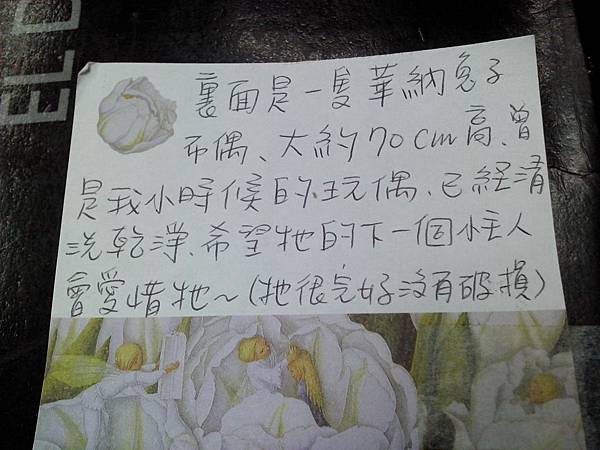 裏面是一隻華納兔子
布偶、大約70cm高、曾
是我小時候的玩偶、已経清
洗乾淨、希望牠的下一個小主人
會愛惜牠～(牠很完好沒有破損)
ELD